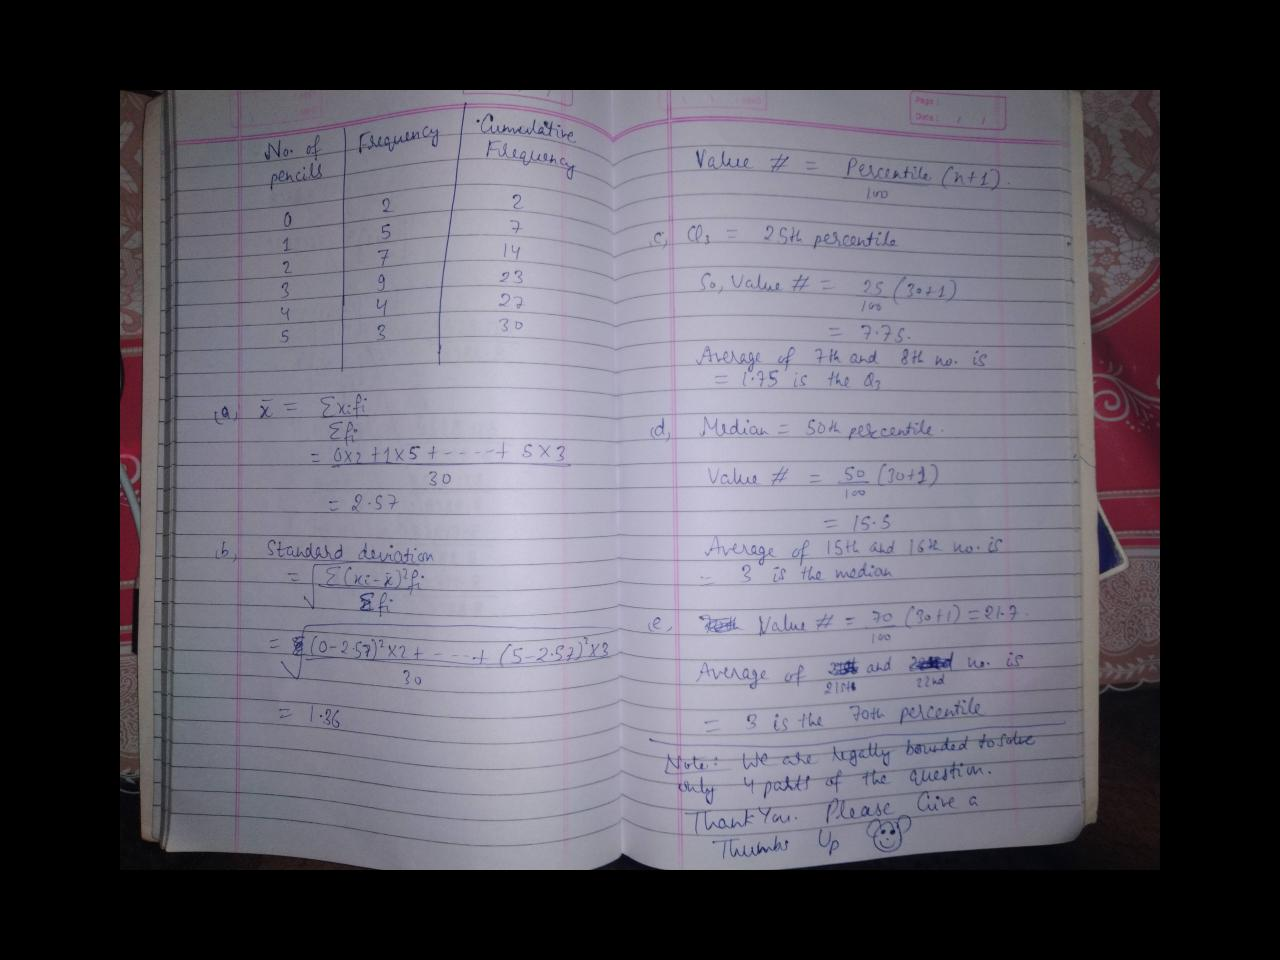 No. of pencils | Frequency | Cumulative Frequency
0 | 2 | 2
1 | 5 | 7
2 | 7 | 14
3 | 9 | 23
4 | 4 | 27
5 | 3 | 30
(a) x̄ = Σxifi
Σfi
= 0x2 + 1x5 + ---- + 5x3
30
= 2.57
(b) Standard deviation
= √ Σ(xi-x̄)²fi
Σfi
= √ (0-2.57)²x2 + ---- + (5-2.57)²x3
30
= 1.36
Page :
Date : / /
Value # = Percentile (n+1).
100
(c) Q3 = 25th percentile
So, Value # = 25 (30+1)
100
= 7.75.
Average of 7th and 8th no. is
= 1.75 is the Q3
(d) Median = 50th percentile.
Value # = 50 (30+1)
100
= 15.5
Average of 15th and 16th no. is
= 3 is the median
(e) Value # = 70 (30+1) = 21.7.
100
Average of 21st and 22nd no. is
= 3 is the 70th percentile
Note: We are legally bounded to solve
only 4 parts of the question.
Thank You. Please Give a
Thumbs Up